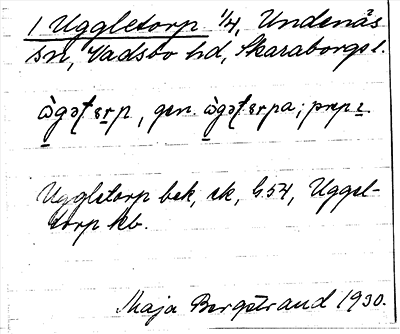 1 Uggletorp 1/4, Undenäs
sn, Vadsbo hd, Skaraborgs l.
ὼgəƭɛrp, gen. ὼgəƭɛrpa; prep ɪ.
Uggletorp bek, ek, G.54, Uggel-
torp kb.
Maja Bergstrand 1930.